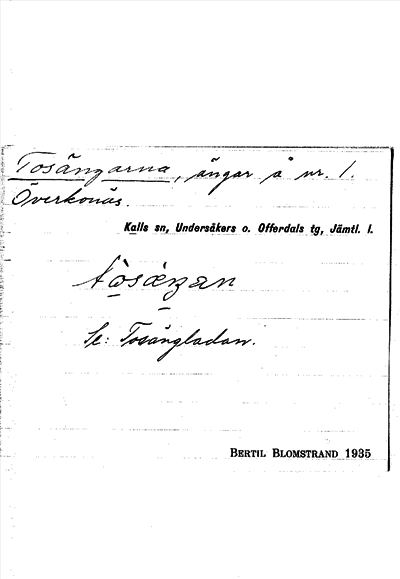 Tosängarna, ängar å nr. 1.
Överkonäs.
Kalls sn, Undersåkers o. Offerdals tg, Jämtl. l.
tòsæŋan
Se: Tosängladan.
BERTIL BLOMSTRAND 1935